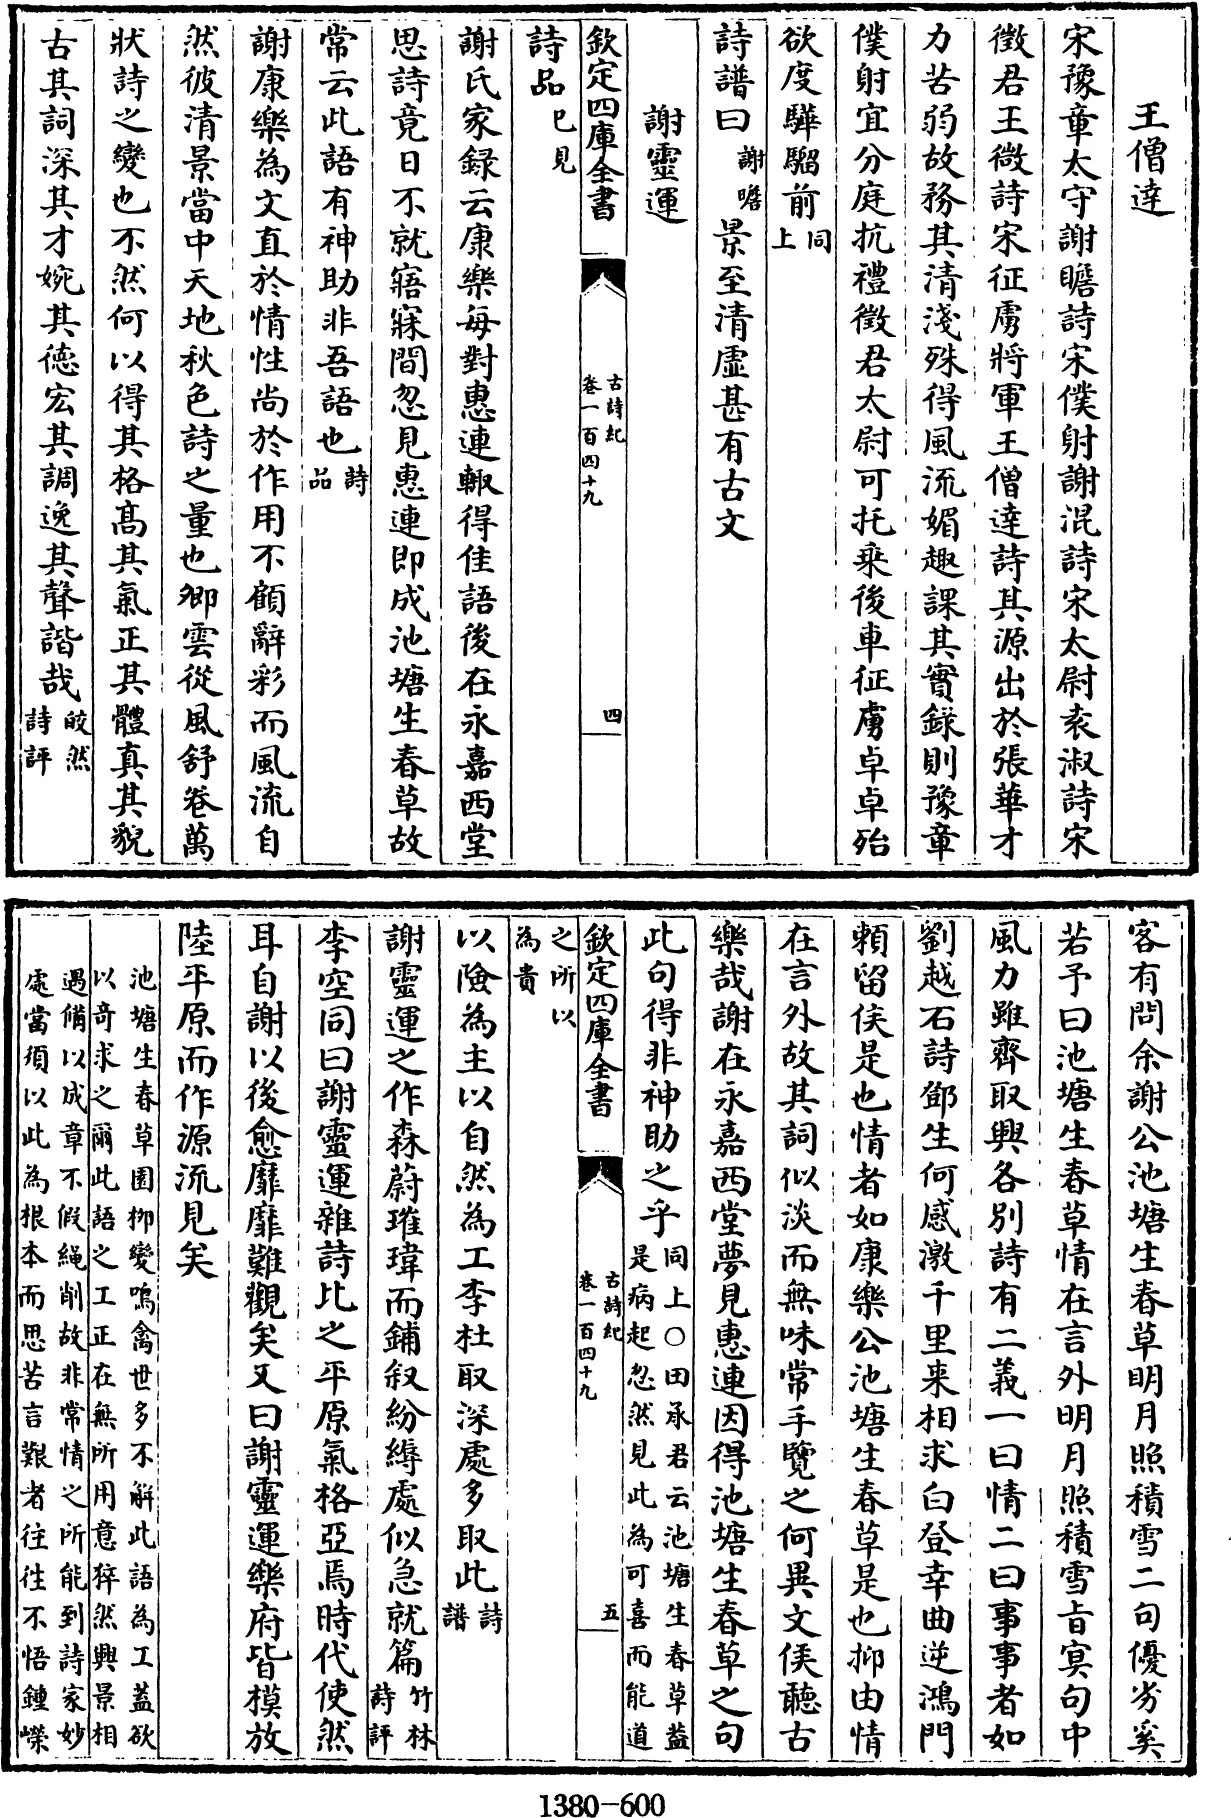 王僧達
宋豫章太守謝瞻詩宋僕射謝混詩宋太尉袁淑詩宋
徵君王微詩宋征虜將軍王僧達詩其源出於張華才
力苦弱故務其清淺殊得風流媚趣課其實録則豫章
僕射宜分庭抗禮徵君太尉可托乗後車征虜卓卓殆
欲度驊騮前同上
詩譜曰謝瞻景至清虛甚有古文
謝靈運
欽定四庫全書
古詩紀
卷一百四十九
四
詩品已見
謝氏家録云康樂每對惠連輙得佳語後在永嘉西堂
思詩竟日不就寤寐間忽見惠連即成池塘生春草故
常云此語有神助非吾語也詩品
謝康樂為文直於情性尚於作用不顧辭彩而風流自
然彼清景當中天地秋色詩之量也卿雲從風舒卷萬
狀詩之變也不然何以得其格髙其氣正其體真其貌
古其詞深其才婉其德宏其調逸其聲諧哉皎然詩評
客有問余謝公池塘生春草明月照積雪二句優劣奚
若予曰池塘生春草情在言外明月照積雪旨冥句中
風力雖齊取興各別詩有二義一曰情二曰事事者如
劉越石詩鄧生何感激千里来相求白登幸曲逆鴻門
賴留侯是也情者如康樂公池塘生春草是也抑由情
在言外故其詞似淡而無味常手覽之何異文侯聽古
樂哉謝在永嘉西堂夢見惠連因得池塘生春草之句
此句得非神助之乎同上○田承君云池塘生春草葢是病起忽然見此為可喜而能道
欽定四庫全書
古詩紀
卷一百四十九
五
之所以為貴
以險為主以自然為工李杜取深處多取此詩譜
謝靈運之作森蔚璀瑋而鋪叙紛縟處似急就篇竹林詩評
李空同曰謝靈運雜詩比之平原氣格亞焉時代使然
耳自謝以後愈靡靡難觀矣又曰謝靈運樂府皆模放
陸平原而作源流見矣
池塘生春草園柳變鳴禽世多不解此語為工蓋欲
以奇求之爾此語之工正在無所用意猝然興景相
遇備以成章不假繩削故非常情之所能到詩家妙
處當須以此為根本而思苦言艱者往往不悟鍾嶸
1380-600